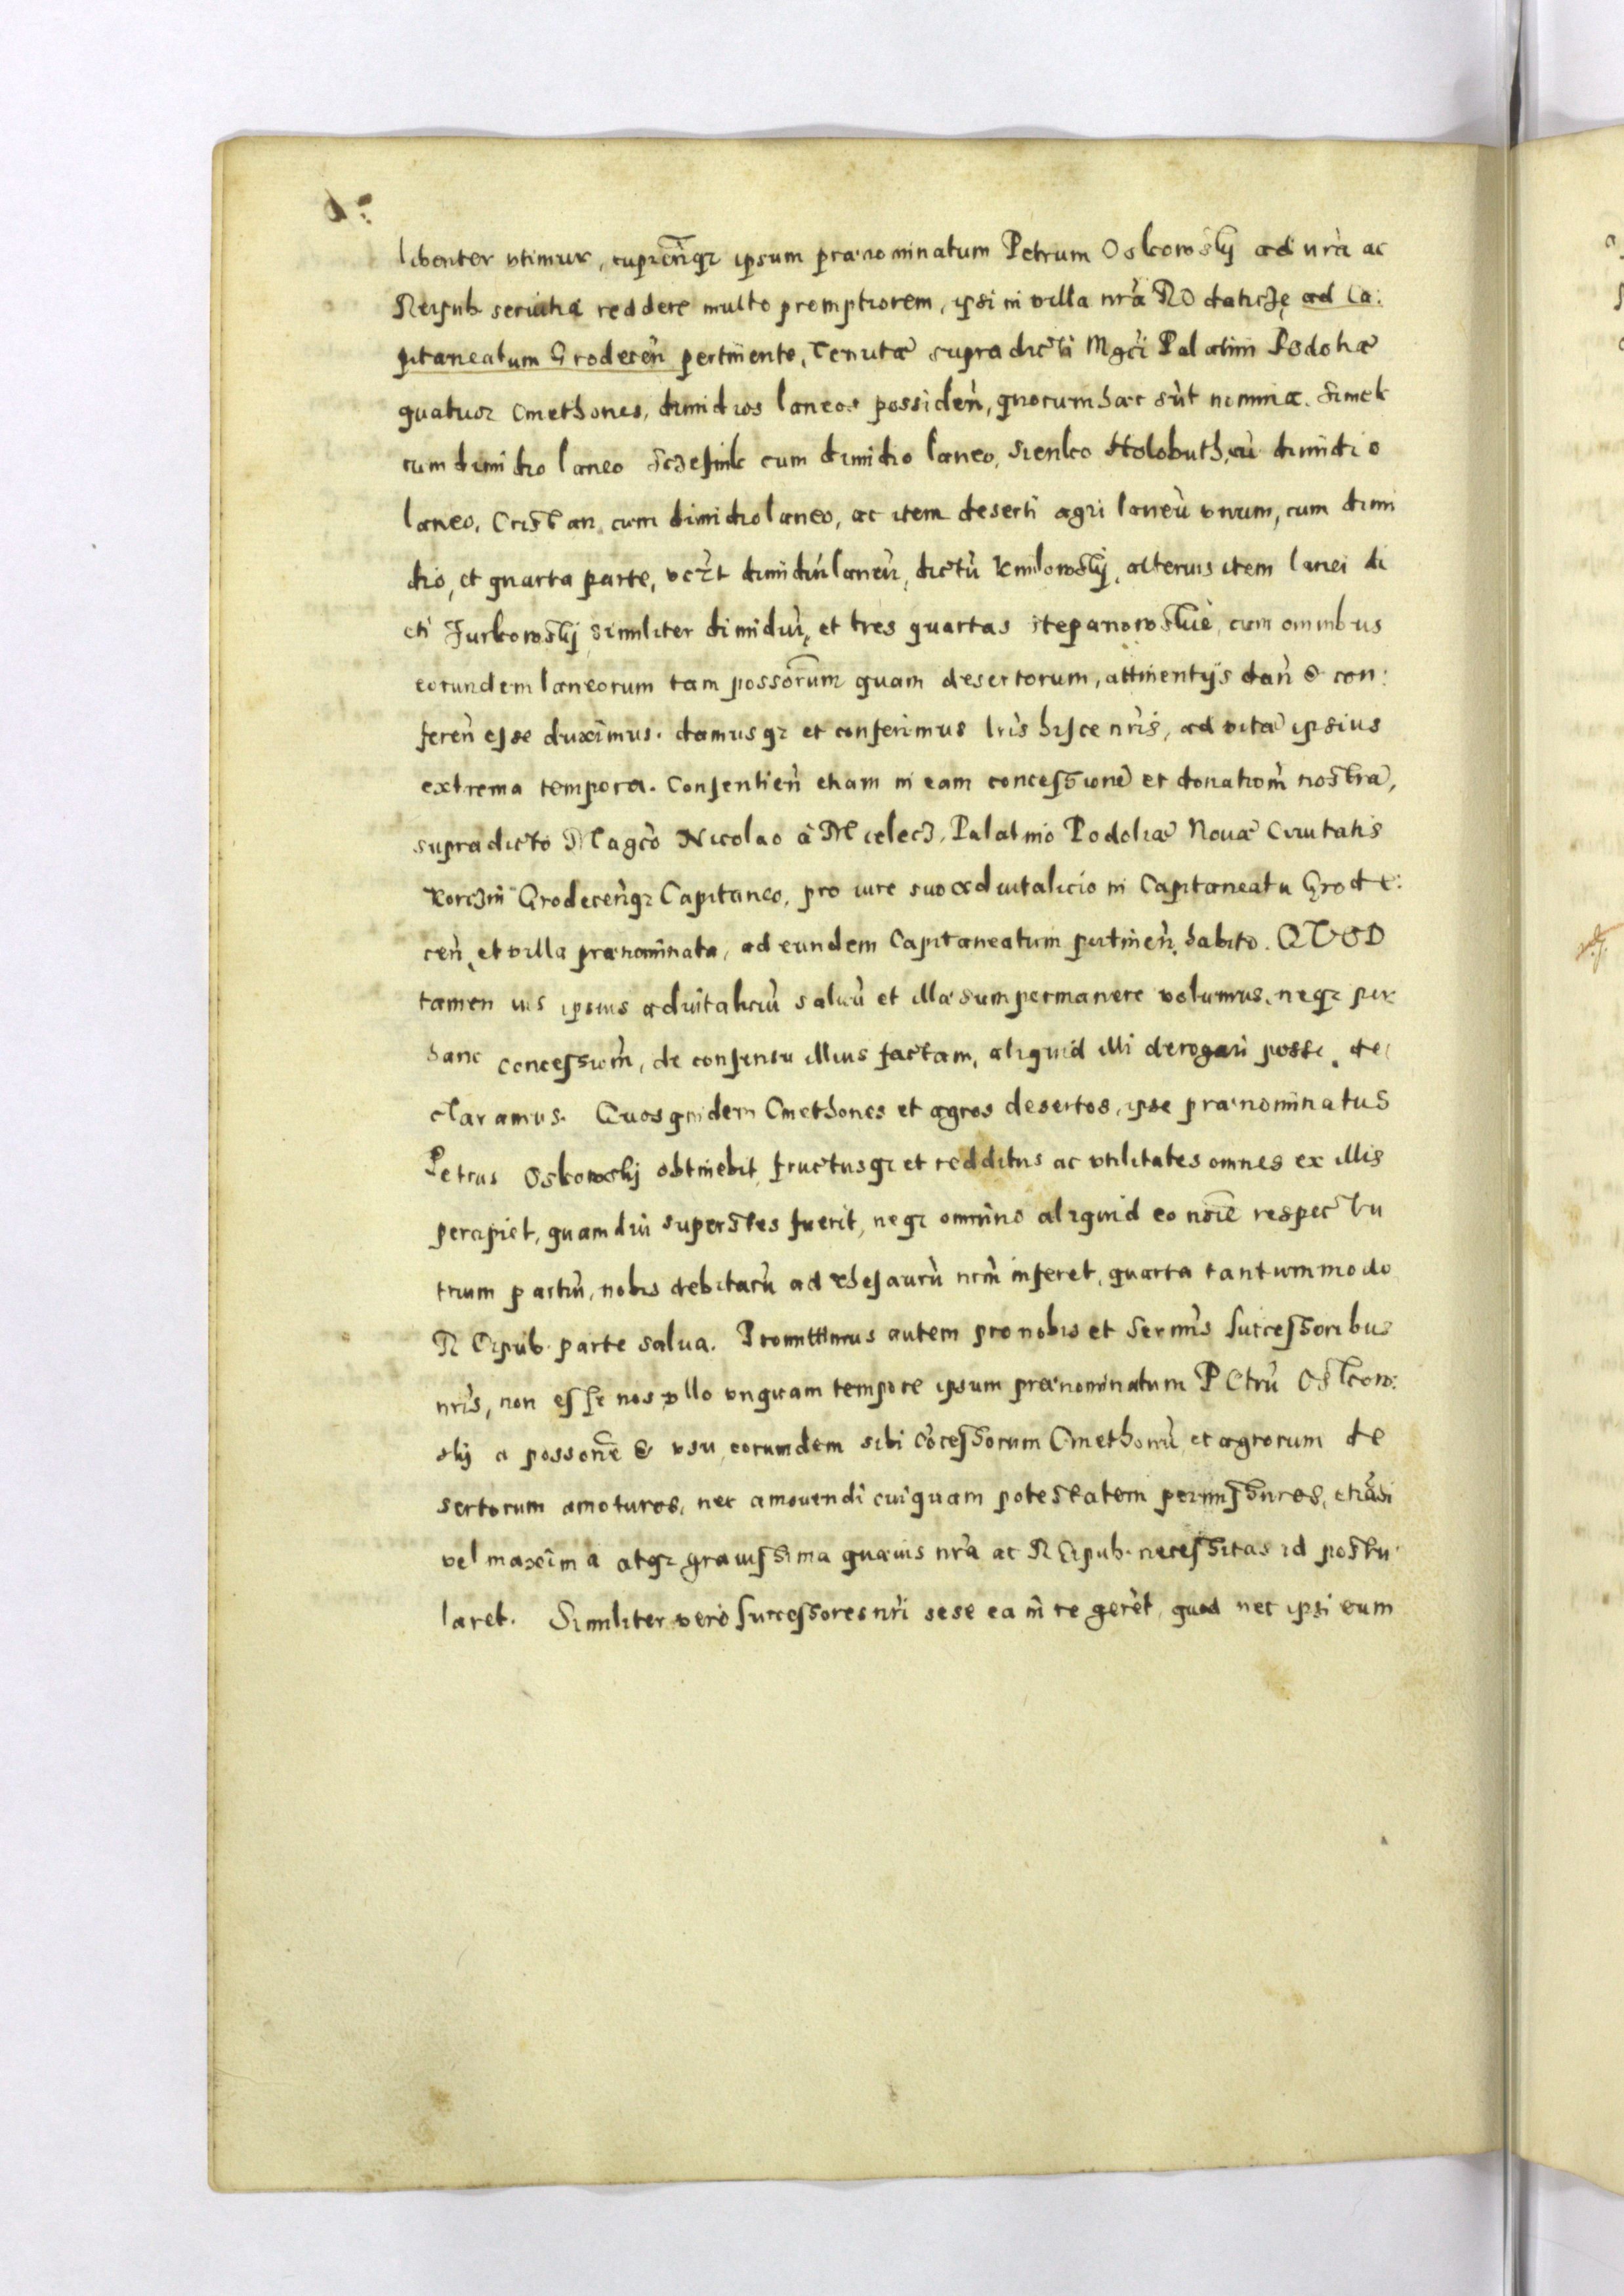 libenter vtimur, cupien̄qȝ ipsum prænominatum Petrum Oskowskij ad nrā ac
Reipub. seruitia reddere multo promptiorem, ipsi in villa nrā ROdaticze ad Ca:
pitaneatum Grodecen̄ pertinente, Tenutæ supradicti Mgci Palatini Podoliæ
quatuor Cmethones, dimidios laneos possiden̄, quorum hæc sūt nomina. Simek
cum dimidio laneo Sczesnik cum dimidio laneo, Sienko Holobuth, cū dimidio
laneo, Cristan, cum dimidio laneo, ac item deserti agri laneū vnum, cum dimi
dio, et quarta parte, dimidiū laneū, dictū alterius item lanei di
cti Jurkowskij similiter dimidiū, et tres quartas Stepanowskie, cum omnibus
eorundem laneorum tam possorum quam desertorum, attinentijs dan̄ & con:
feren̄ esse duximus. damusqȝ et conferimus lris hisce nris, ad vitæ ipsius
extrema tempora. Consentien̄ etiam in eam concessionē et donationē nostrā,
supradicto Magco Nicolao à Mielecz, Palatino Podoliæ Nouæ Ciuitatis
Korczin Grodecen̄qȝ Capitaneo, pro iure suo aduitalicio in Capitaneatu Grode:
cen̄, et villa prænominata, ad eundem Capitaneatum pertinen̄, habito. QVOD
tamen ius ipsius aduitaliciū saluū et illæsum permanere volumus, neqȝ per
hanc concessionē, de consensu illius factam, aliquid illi derogari posse, de
claramus. Quos quidem Cmethones et agros desertos, ipse prænominatus
Petrus Oskowskij obtinebit, fructusqȝ et redditus ac vtilitates omnes ex illis
percipiet, quamdiu superstes fuerit, neqȝ omnino aliquid eo noīe respectu
trium partiū, nobis debitarū ad thesaurū nrm inferet, quarta tantummodo
REipub. parte salua. Promittimus autem pro nobis et Sermis Successoribus
nris, non esse nos vllo vnquam tempore ipsum prænominatum PEtrū Oskow:
skij a possonē & vsu, eorundem sibi cōcessorum Cmethonū, et agrorum de
sertorum amoturos, nec amouendi cuiquam potestatem permissuros, etiāsi
vel maxima atqȝ grauissima quæuis nrā ac REipub. necessitas id postu
laret. Similiter vero successores nri sese ea in re gerēt, quod nec ipsi eum